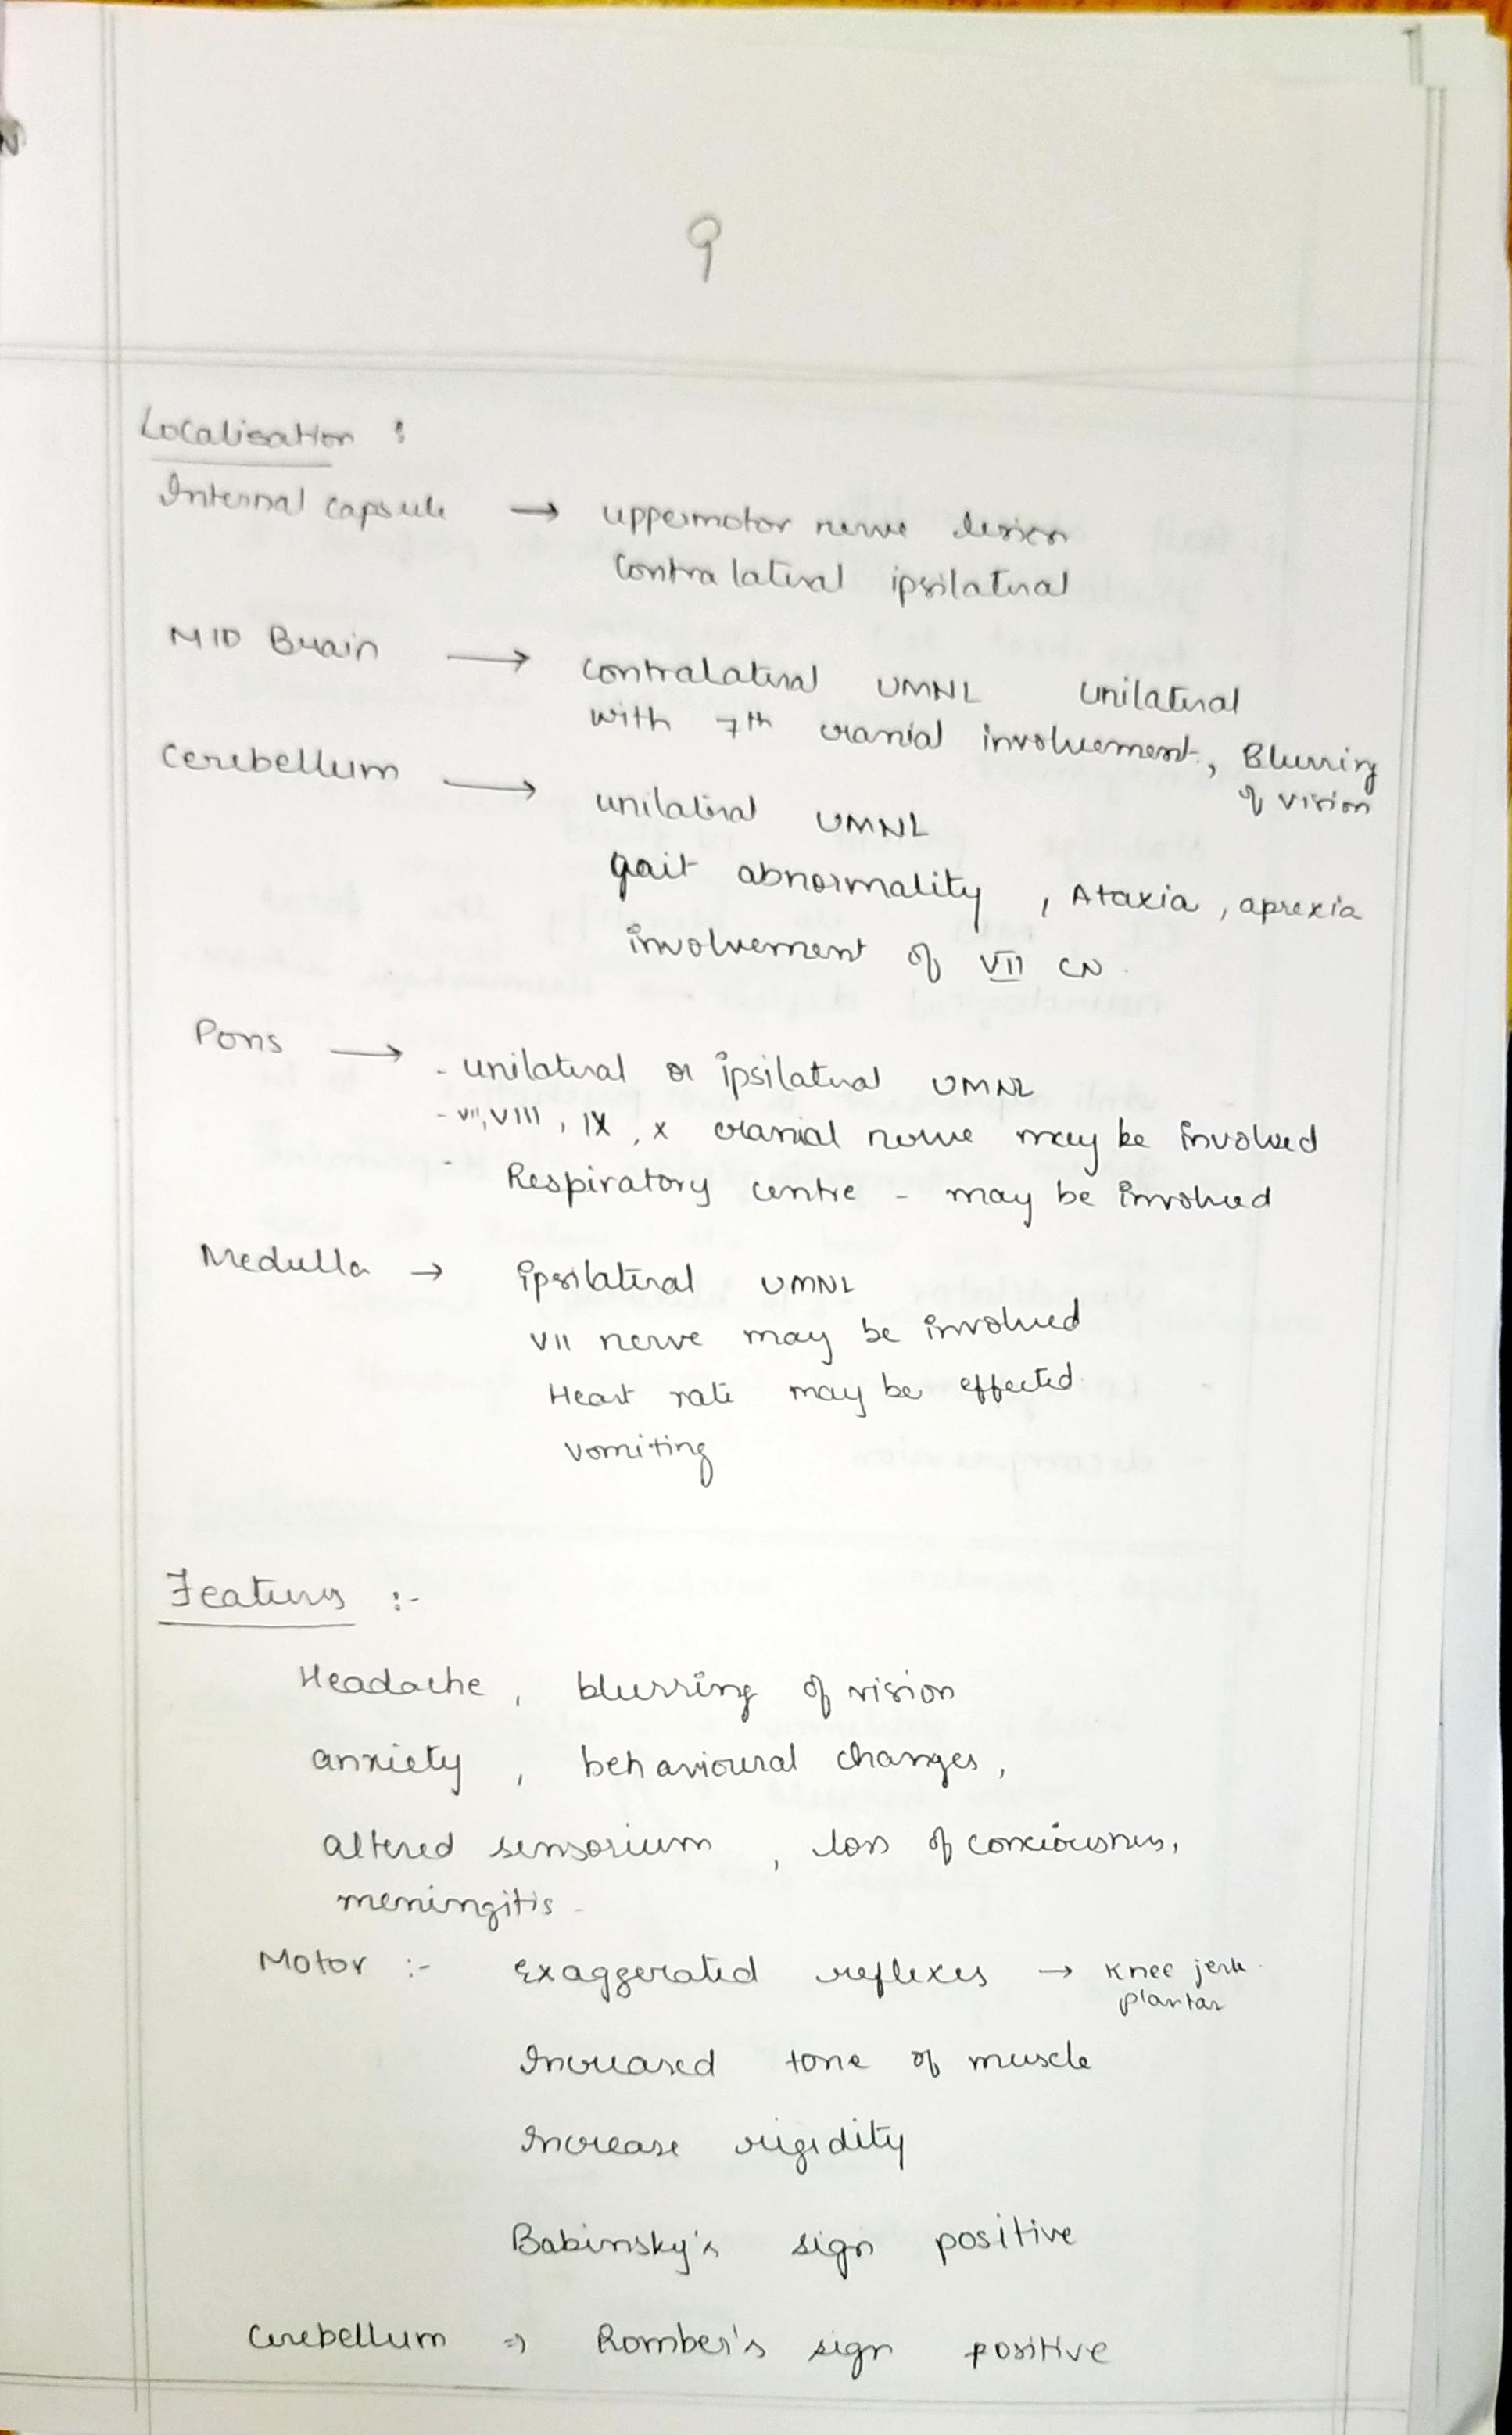 9
Localisation :
Internal capsule → uppermotor nerve lesion
Contralateral ipsilateral
MID Brain → contralateral UMNL unilateral
with 7th cranial involvement, Blurring
of vision
Cerebellum → unilateral UMNL
gait abnormality , Ataxia , aprexia
involvement of VII CN.
Pons → - unilateral or ipsilateral UMNL
- VII, VIII, IX, X cranial nerve may be involved
- Respiratory centre - may be involved
Medulla → ipsilateral UMNL
VII nerve may be involved
Heart rate may be effected.
vomiting
Features :-
Headache , blurring of vision
anxiety , behavioural changes ,
altered sensorium , loss of conciousness,
meningitis -
Motor :- Exaggerated reflexes → Knee jerk.
plantar
Increased tone of muscle
Increase rigidity
Babinsky's sign positive
Cerebellum ⇒ Romber's sign positive